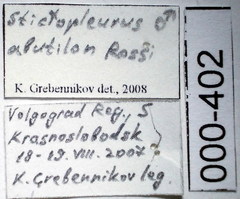 Stictopleurus ♂
abutilon Rossi
K. Grebennikov det., 2008
Volgograd Reg., S
Krasnoslobodsk
18-19.VIII.2007
K. Grebennikov leg.
000-402